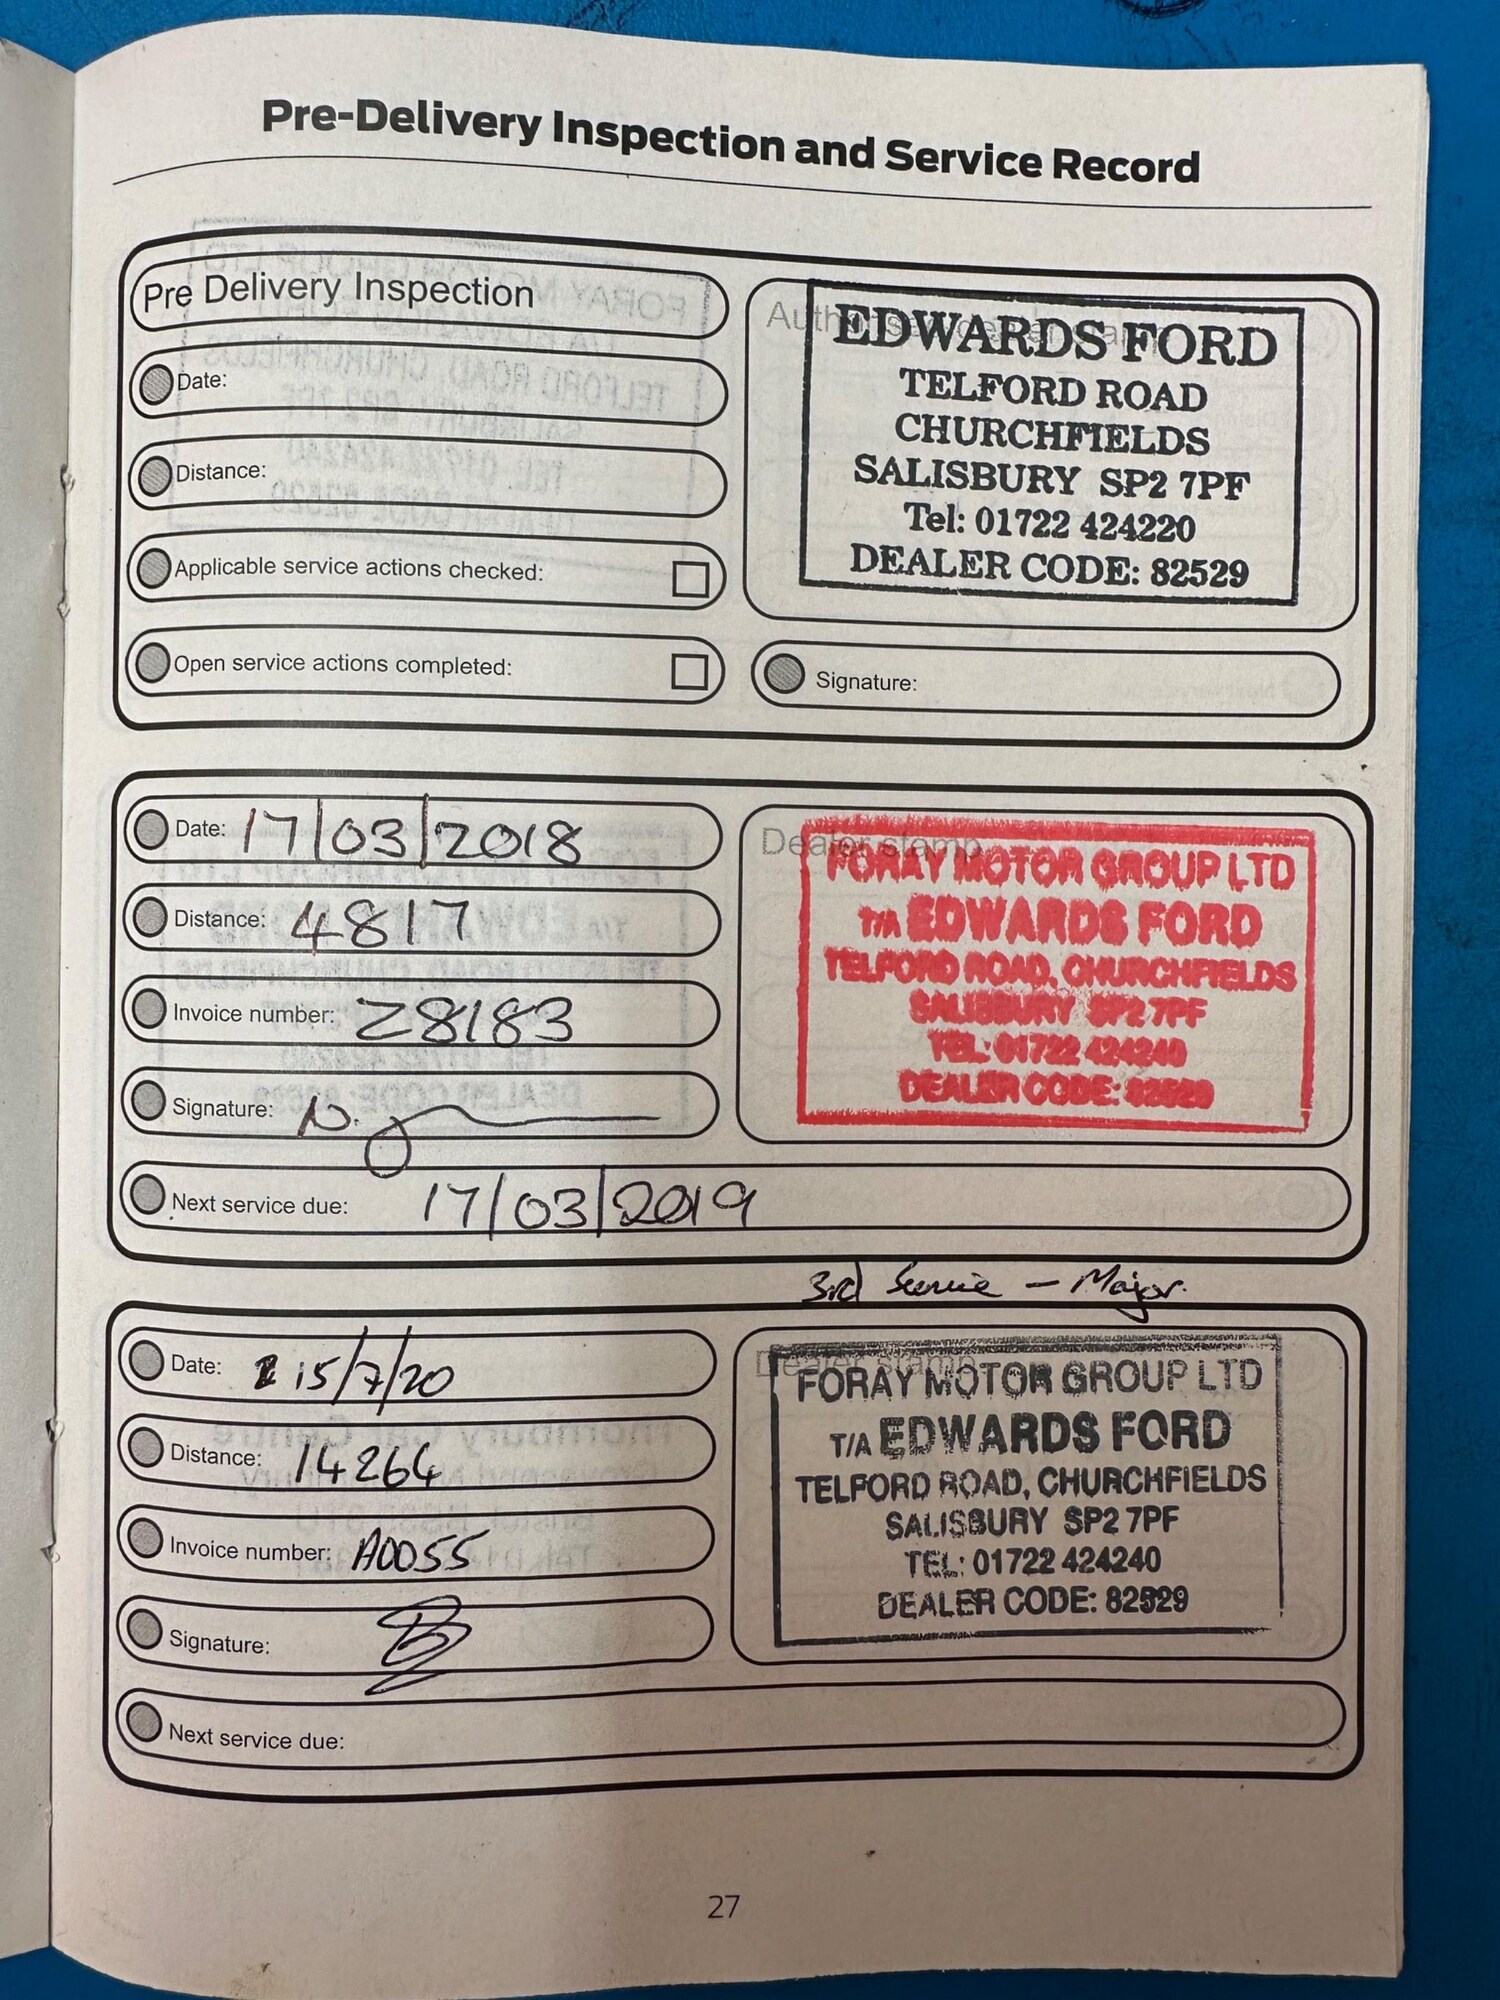 Pre-Delivery Inspection and Service Record
Pre Delivery Inspection
Date:
Distance:
Applicable service actions checked:
Open service actions completed:
EDWARDS FORD
TELFORD ROAD
CHURCHFIELDS
SALISBURY SP2 7PF
Tel: 01722 424220
DEALER CODE: 82529
Signature:
Date: 17/03/2018
Distance: 4817
Invoice number: Z8183
Signature:
Dealer stamp
FORAY MOTOR GROUP LTD
T/A EDWARDS FORD
TELFORD ROAD, CHURCHFIELDS
SALISBURY SP2 7PF
TEL: 01722 424240
DEALER CODE: 82529
Next service due: 17/03/2019
3rd Service - Major.
Date: 15/7/20
Distance: 14264
Invoice number: A0055
Signature:
Dealer stamp
FORAY MOTOR GROUP LTD
T/A EDWARDS FORD
TELFORD ROAD, CHURCHFIELDS
SALISBURY SP2 7PF
TEL: 01722 424240
DEALER CODE: 82529
Next service due:
27